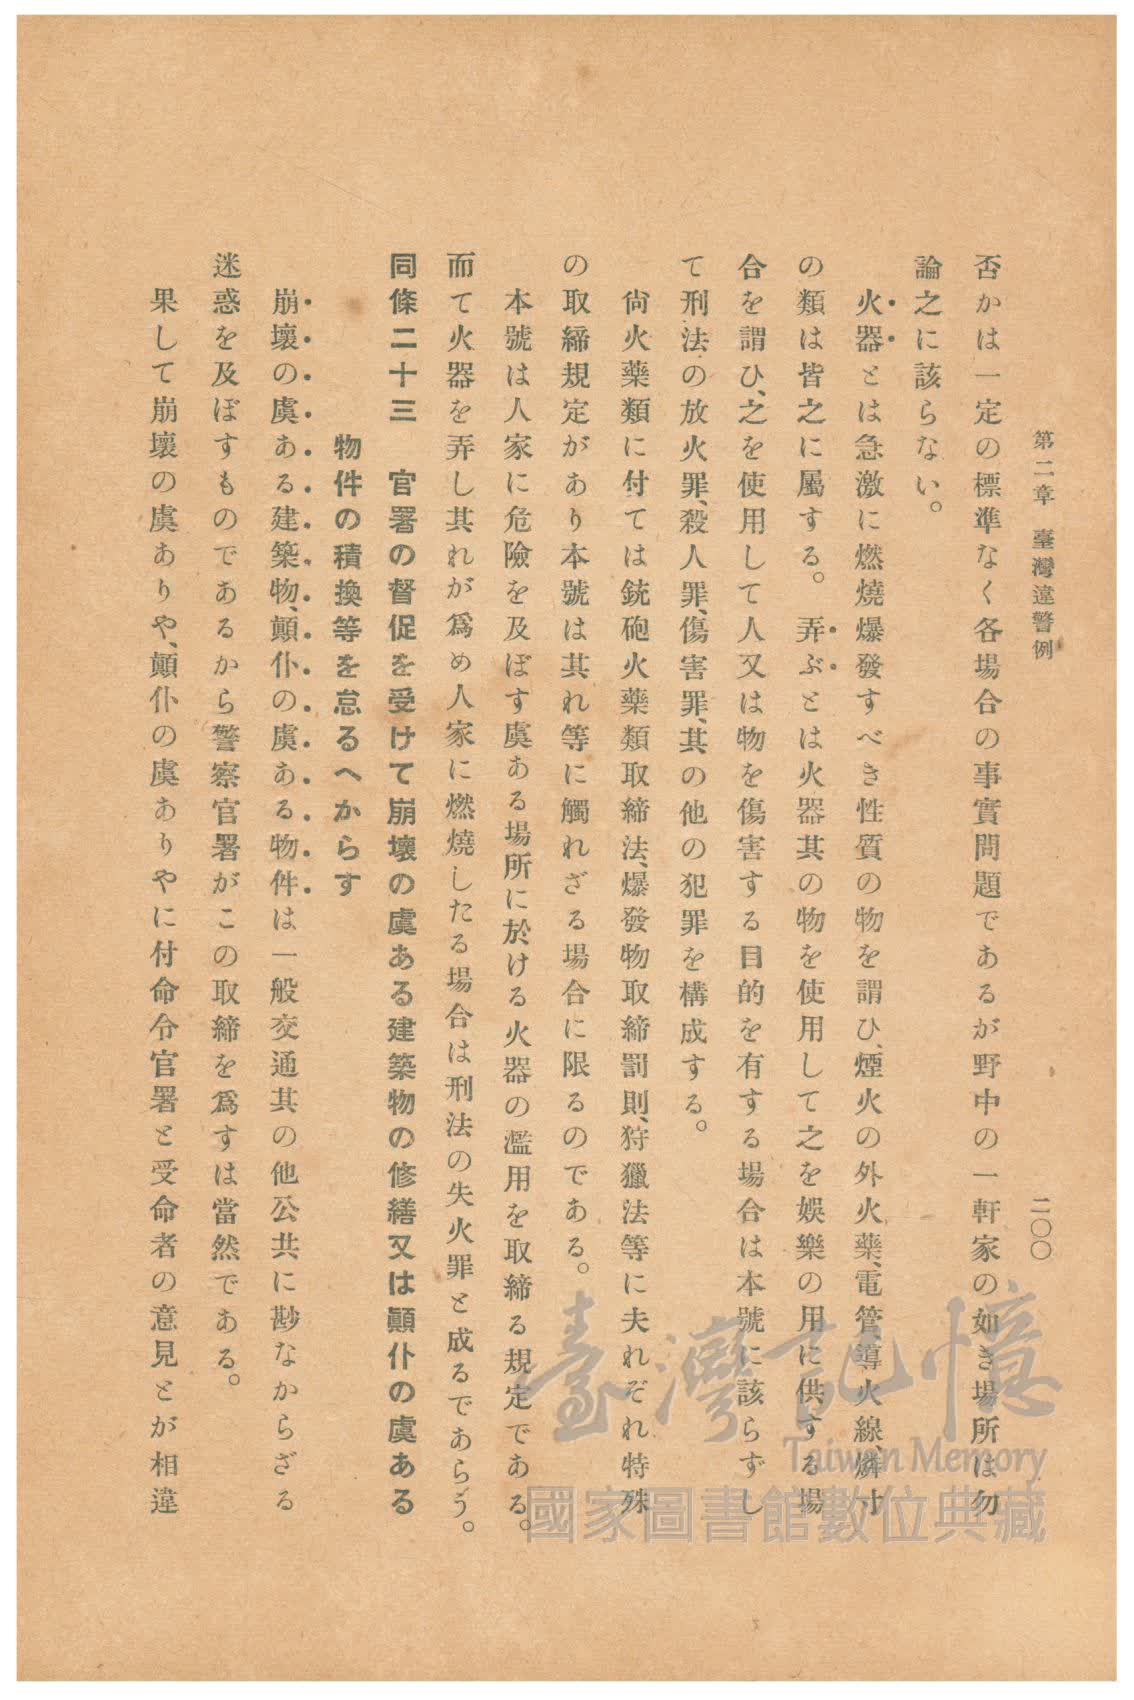 第二章 臺灣違警例
二〇〇
否かは一定の標準なく各場合の事實問題であるが野中の一軒家の如き場所は勿
論之に該らない。
火器とは急激に燃燒爆發すべき性質の物を謂ひ、煙火の外火藥、電管導火線、燐寸
の類は皆之に屬する。弄ぶとは火器其の物を使用して之を娯樂の用に供する場
合を謂ひ、之を使用して人又は物を傷害する目的を有する場合は本號に該らずし
て刑法の放火罪、殺人罪、傷害罪、其の他の犯罪を構成する。
尙火藥類に付ては銃砲火藥類取締法、爆發物取締罰則、狩獵法等に夫れぞれ特殊
の取締規定があり本號は其れ等に觸れざる場合に限るのである。
本號は人家に危險を及ぼす虞ある場所に於ける火器の濫用を取締る規定である。
而て火器を弄し其れが爲め人家に燃燒したる場合は刑法の失火罪と成るであらう。
同條二十三 官署の督促を受けて崩壞の虞ある建築物の修繕又は顚仆の虞ある
物件の積換等を怠るへからす
崩壞の虞ある建築物、顚仆の虞ある物件は一般交通其の他公共に尠なからざる
迷惑を及ぼすものであるから警察官署がこの取締を爲すは當然である。
果して崩壞の虞ありや、顚仆の虞ありやに付命令官署と受命者の意見とが相違
臺灣記憶
Taiwan Memory
國家圖書館數位典藏